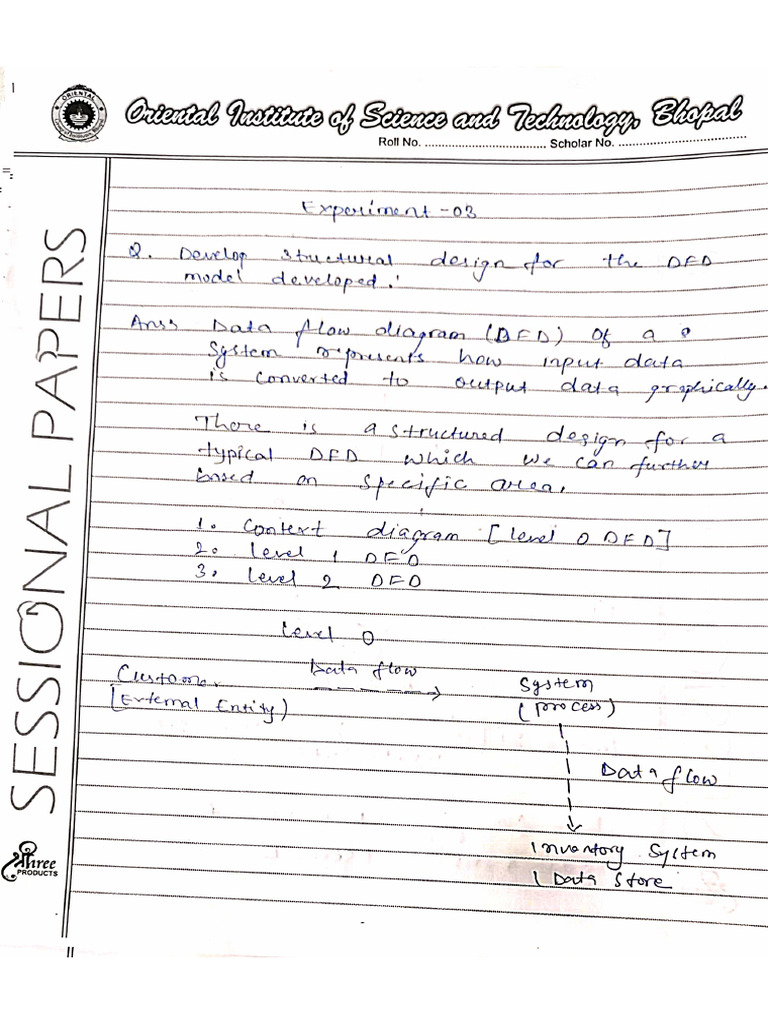 ORIENTAL
Oriental Institute of Science and Technology, Bhopal
Roll No. ................................ Scholar No. ..................................
SESSIONAL PAPERS
Experiment -03
Q. Develop structural design for the DFD
model developed.
Ans: Data flow diagram (DFD) of a
system represents how input data
is converted to output data graphically.
There is a structured design for a
typical DFD which we can further
based on specific area.
1. Context diagram [level 0 DFD]
2. Level 1 DFD
3. Level 2 DFD
Level 0
Data flow
Customer
System
[External Entity)
(process)
Data flow
Inventory System
Data Store
Shree
PRODUCTS